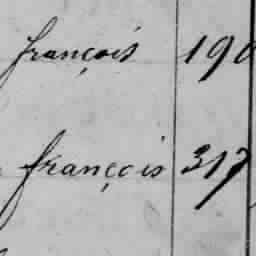 françois 190
françois 317